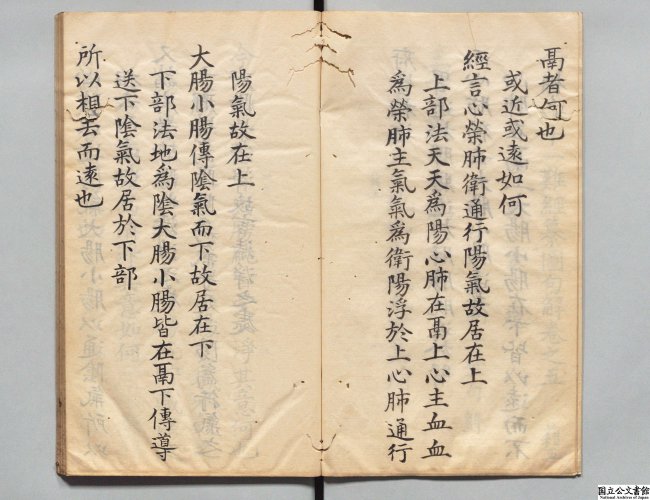 鬲者何也
或近或遠如何
經言心榮肺衛通行陽氣故居在上
上部法天天為陽心肺在鬲上心主血血
為榮肺主氣氣為衛陽浮於上心肺通行
陽氣故在上
大腸小腸傳陰氣而下故居在下
下部法地為陰大腸小腸皆在鬲下傳導
送下陰氣故居於下部
所以相去而遠也
国立公文書館
National Archives of Japan